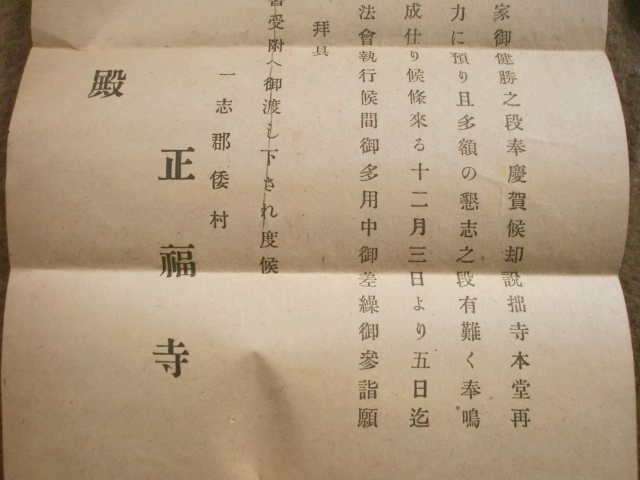 家御健勝之段奉慶賀候却説拙寺本堂再
力に預り且多額の懇志之段有難く奉鳴
成仕り候條來る十二月三日より五日迄
法會執行候間御多用中御差繰御參詣願
拜具
受附へ御渡し下され度候
一志郡倭村
正福寺
殿